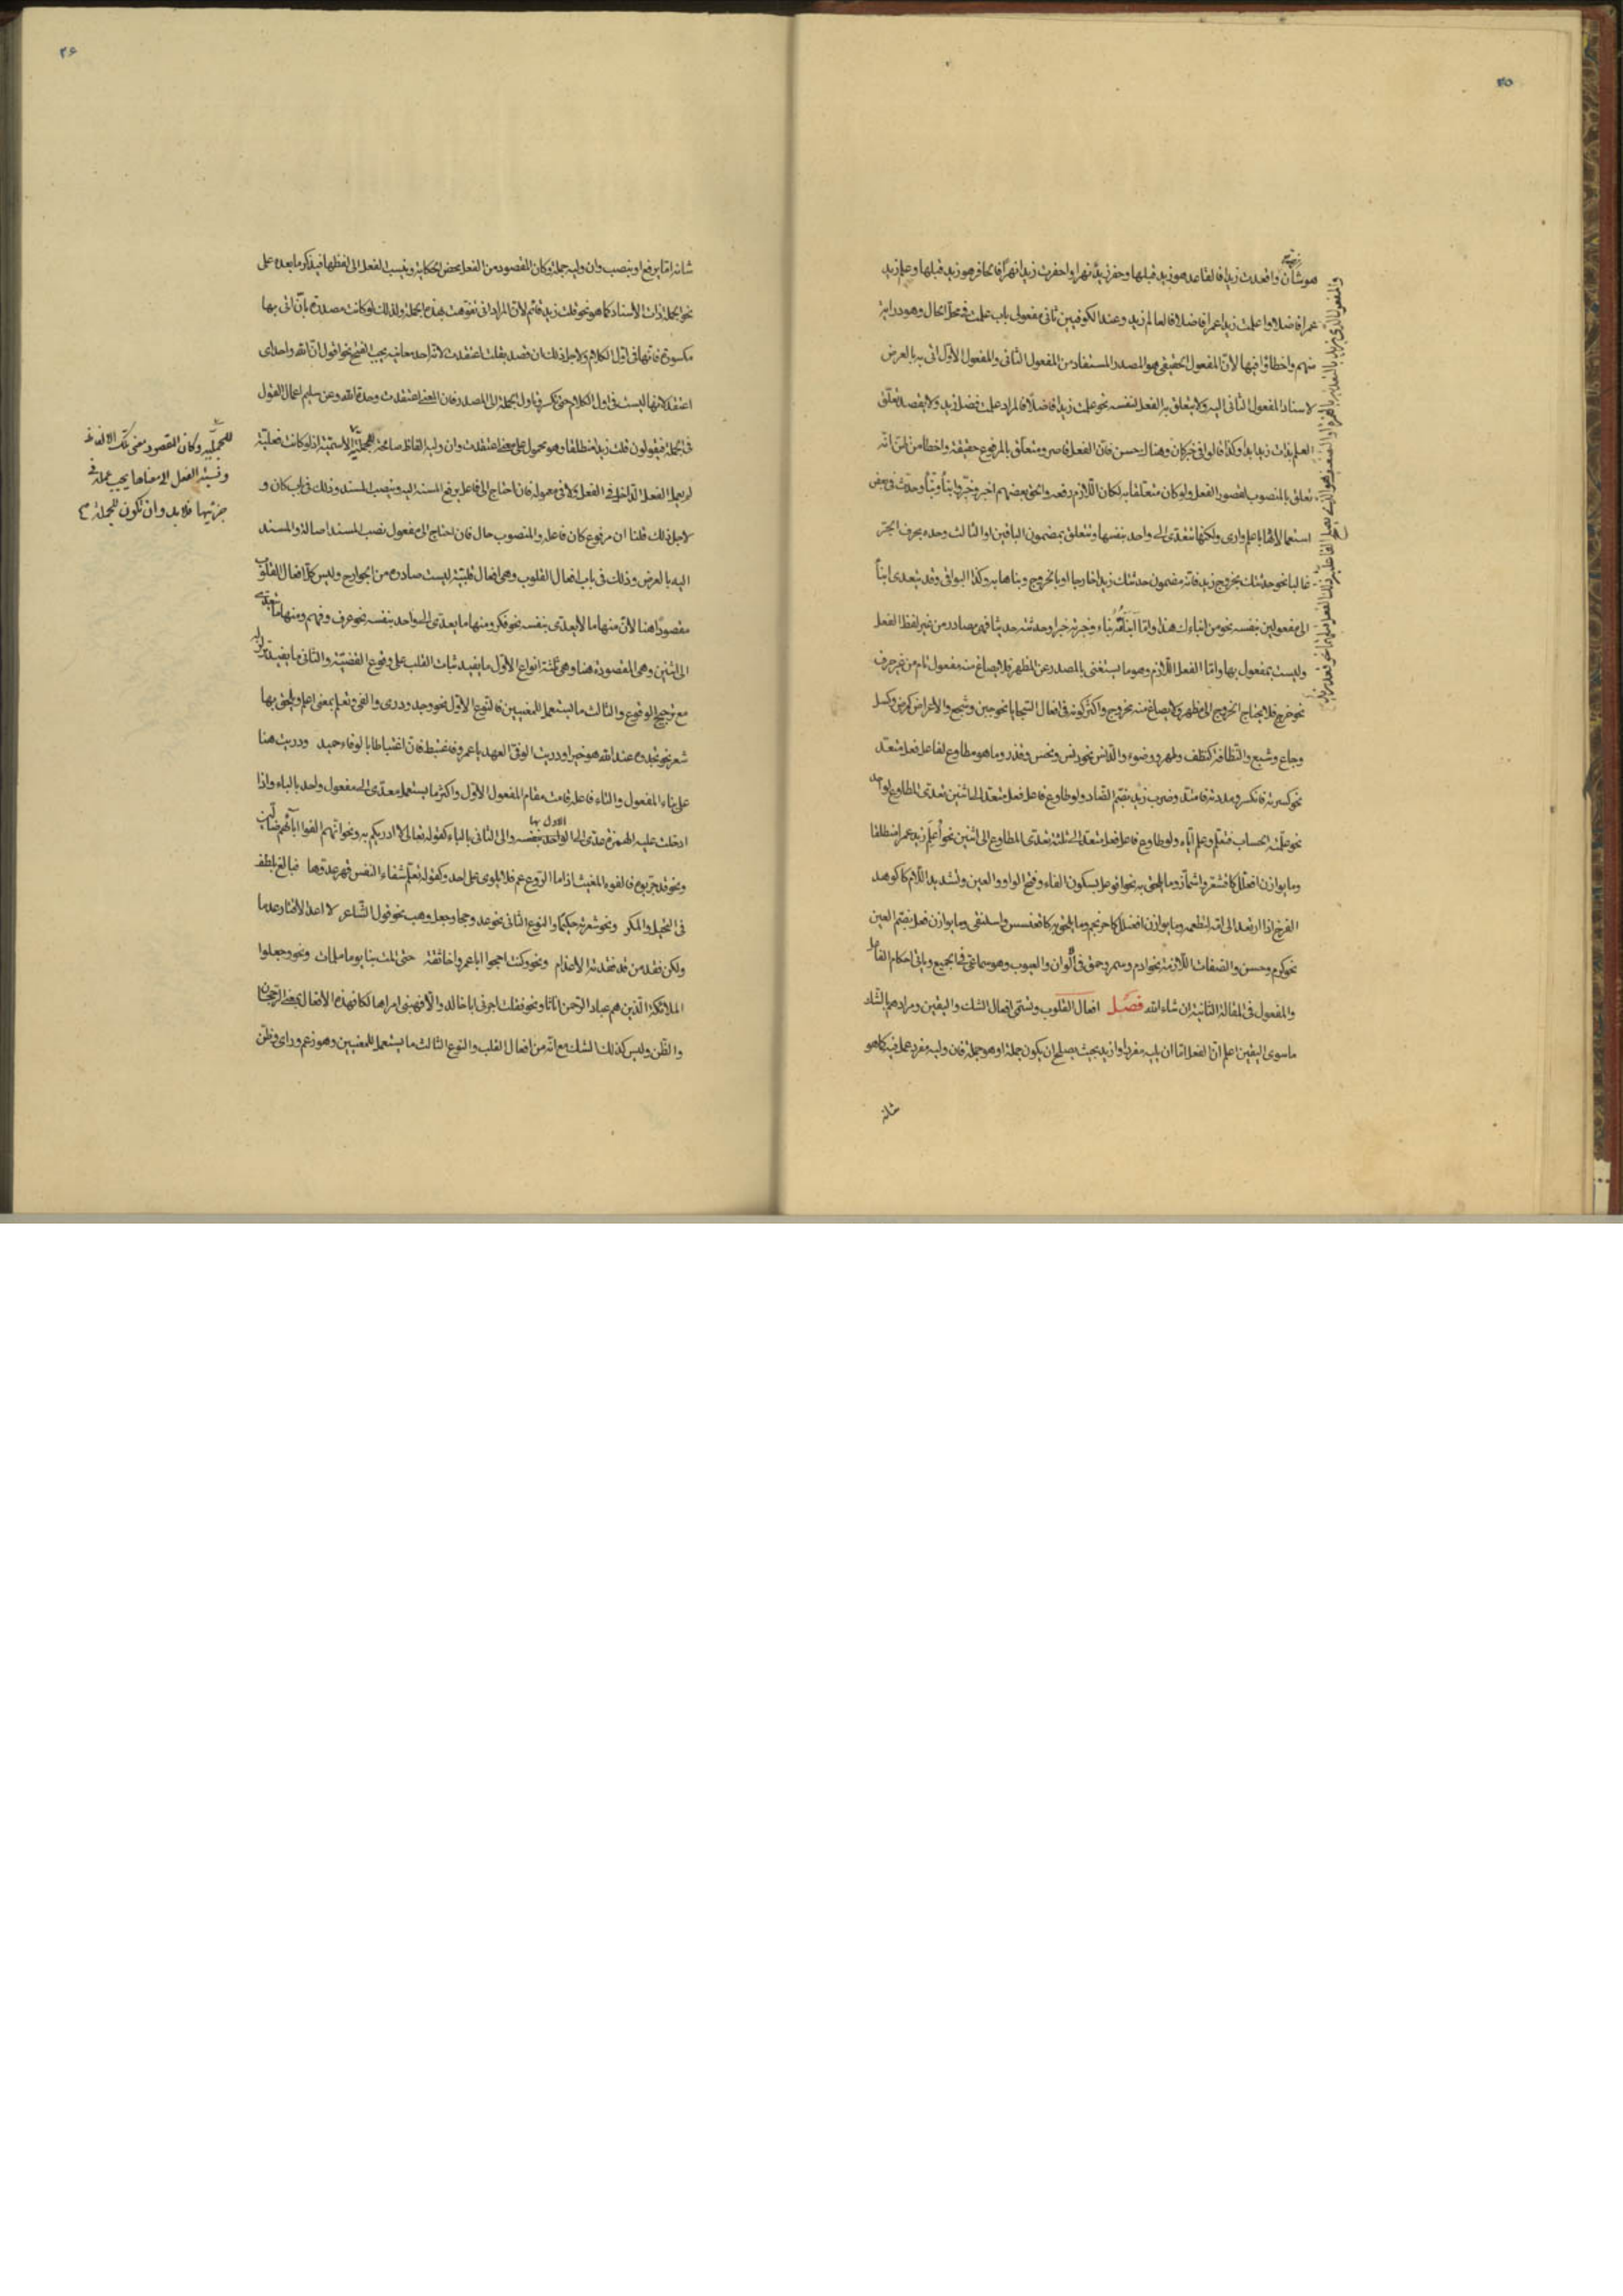 ٣٥
هو شأن واقعدت زيدا فالقاعد هو زيد قبلها وحفر زيد نهرا واحفرت زيدا نهرا فالحافر هو زيد قبلها وعلم زيد
عمرا فاضلا واعلمت زيدا عمرا فاضلا فالعالم زيد وعند الكوفيين ثاني مفعولي باب علمت في محل الحال وهو دراية
منهم واخطاؤا فيها لان المفعول الحقيقي هو المصدر المستفاد من المفعول الثاني والمفعول الاول اتى به بالعرض
لاسناد المفعول الثاني اليه ولا يتعلق به الفعل لنفسه نحو علمت زيدا فاضلا فالمراد علمت فضل زيد ولا يقصد تعلق
العلم بذات زيد ابدا وكذا قالوا في خبر كان وهناك حسن فان الفعل قاصر ومتعلق بالمرفوع حقيقة واخطأ من ظن انه
تعلق بالمنصوب لقصور الفعل ولو كان متعلقا به لكان اللازم رفعه والحق بعضهم اخبر وخبر وانبأ ونبأ وحدث في بعض
استعمالاتها باعلم وارى ولكنها تتعدى الى واحد بنفسها وتتعلق بمضمون الباقين او الثالث وحده بحرف الجر
غالبا نحو حدثتك بخروج زيد فانه مضمون حدثتك زيدا خارجا او بالخروج وبناها به وكذا البواقي وقد يتعدى انبأ
الى مفعولين بنفسه نحو من انباءك هذا واما انبأته نباء وخبرته خبرا وحدثته حديثا فهي مصادر من غير لفظ الفعل
وليست بمفعول بها واما الفعل اللازم وهو ما يستغنى بالمصدر عن المظهر فلا يصاغ منه مفعول تام من غير حرف
نحو خرج فلا يحتاج الخروج الى مظهر ولا يصاغ منه مخروج واكثر كونه في افعال السجايا نحو جبن وشجع والاعراض كمرض وكسل
وجاع وشبع والنظافة كنظف وطهر ووضوء والدنس نحو دنس ونجس وقذر وما هو مطاوع لفاعل فعل متعد
نحو كسرته فانكسر ومددته فامتد وضرب زيد بضم الضاد ولو طاوع فاعل فعل متعد الى اثنين تعدى المطاوع لواحد
نحو علمته الحساب فتعلم وعلم اياه ولو طاوع فاعل فعل متعد الى ثلثة تعدى المطاوع الى اثنين نحو أعلم زيد عمرا منطلقا
وما يوازن افعلل كاقشعر واشمأز وما يلحق به نحو افوعل بسكون الفاء وفتح الواو والعين وتشديد اللام كاكوهد
الفرخ اذا ارتعد الى امه لتطعمه وما يوازن افعنلل كاحرنجم وما يلحق به كاقعنسس واسلنقى وما يوازن فعل بضم العين
نحو كرم وحسن والصفات اللازمة نحو ادم وسمر وحمق في الوان والعيوب وهو سماعي في الجميع وياتي احكام الفاعل
والمفعول في المقالة الثانية ان شاء الله فصل افعال القلوب وتسمى افعال الشك واليقين ومرادهم بالشك
ما سوى اليقين اعلم ان الفعل اما ان يليه مفرد او ازيد بحيث يصلح ان يكون جملة او هو جملة فان وليه مفرد عمل فيه كما هو
شانه
٣۶
شانه اما يرفع او ينصب وان وليه جملة وكان المقصود من الفعل محض الحكاية وينسب الفعل الى لفظها فيذكر ما بعده على
نحو الجملة ذات الاسناد كما هو نحو قلت زيد قائم لان المراد اني تفوهت بهذه الجملة ولذلك لو كانت مصدرة بان اتى بها
مكسورة فانها في اول الكلام ولاجل ذلك ان قصد بقلت اعتقدت لانه احد معانيه يجب الفتح نحو اقول ان الله واحد اي
اعتقد لانها ليست في اول الكلام حتى تكسر فياول الجملة الى المصدر فان المعنى اعتقدت وحدة الله وعن سليم اعمال القول
في الجملة فيقولون قلت زيدا منطلقا وهو محمول على معنى اعتقدت وان وليه الفاظ صالحة للجملية الاسمية اذ لو كانت فعلية
للجملية وكان المقصود معنى تلك الالفاظ
ونسبة الفعل الى معناها يجب عمله في
جزئيها فلا بد وان تكون للجملة
لم يعمل الفعل الداخل في الفعل ولا في معموله فان احتاج الى فاعل يرفع المسند اليه وينصب المسند وذلك في باب كان و
لاجل ذلك قلنا ان مرفوع كان فاعله والمنصوب حال فان احتاج الى مفعول نصب المسند اصالة والمسند
اليه بالعرض وذلك في باب افعال القلوب وهي افعال قلبية ليست صادره من الجوارح وليس كل افعال القلوب
مقصودا هنا لان منها ما لا يعدى بنفسه نحو فكر ومنها ما يعدى الى واحد بنفسه نحو عرف وفهم ومنها ما يتعدى
الى اثنين وهي المقصوده هنا وهي ثلثة انواع الاول ما يفيد ثبات القلب على وقوع القضية والثاني ما يفيد تزلزله
مع ترجيح الوقوع والثالث ما يستعمل للمعنيين فالنوع الاول نحو وجد ودرى والفى وتعلم بمعنى اعلم ويلحق بها
شعر نحو تجدوه عند الله هو خيرا ودريت الوفي العهد يا عمرو فاغتبط فان اغتباطا بالوفاء حميد ودريت هنا
على بناء المفعول والتاء فاعله قامت مقام المفعول الاول واكثر ما يستعمل معدى الى مفعول واحد بالباء واذا
ادخلت عليه الهمزة عدى الى الاول بها بنفسه والى الثاني بالباء كقوله تعالى لا ادريكم به ونحو انهم الفوا آباءهم ضالين
ونحو قد جربوه فالفوه المغيث اذا ما الروع عم فلا يلوى على احد وكقوله تعلم شفاء النفس قهر عدوها فبالغ بلطف
في التحيل والمكر ونحو شعرته حكيما والنوع الثاني نحو عد وحجا وجعل وهب نحو قول الشاعر لا اعد الاقتار عدما
ولكن فقد من قد فقدته الاعدام ونحو وكنت احجوا ابا عمرو اخا ثقة حتى المت بنا يوما ملمات ونحو وجعلوا
الملائكة الذين هم عباد الرحمن اناثا ونحو فقلت اجرني ابا خالد والا فهبني امرا هالكا فهذه الافعال بمعنى الرجحان
والظن وليس كذلك الشك مع انه من افعال القلب والنوع الثالث ما يستعمل للمعنيين وهو زعم وراى وظن